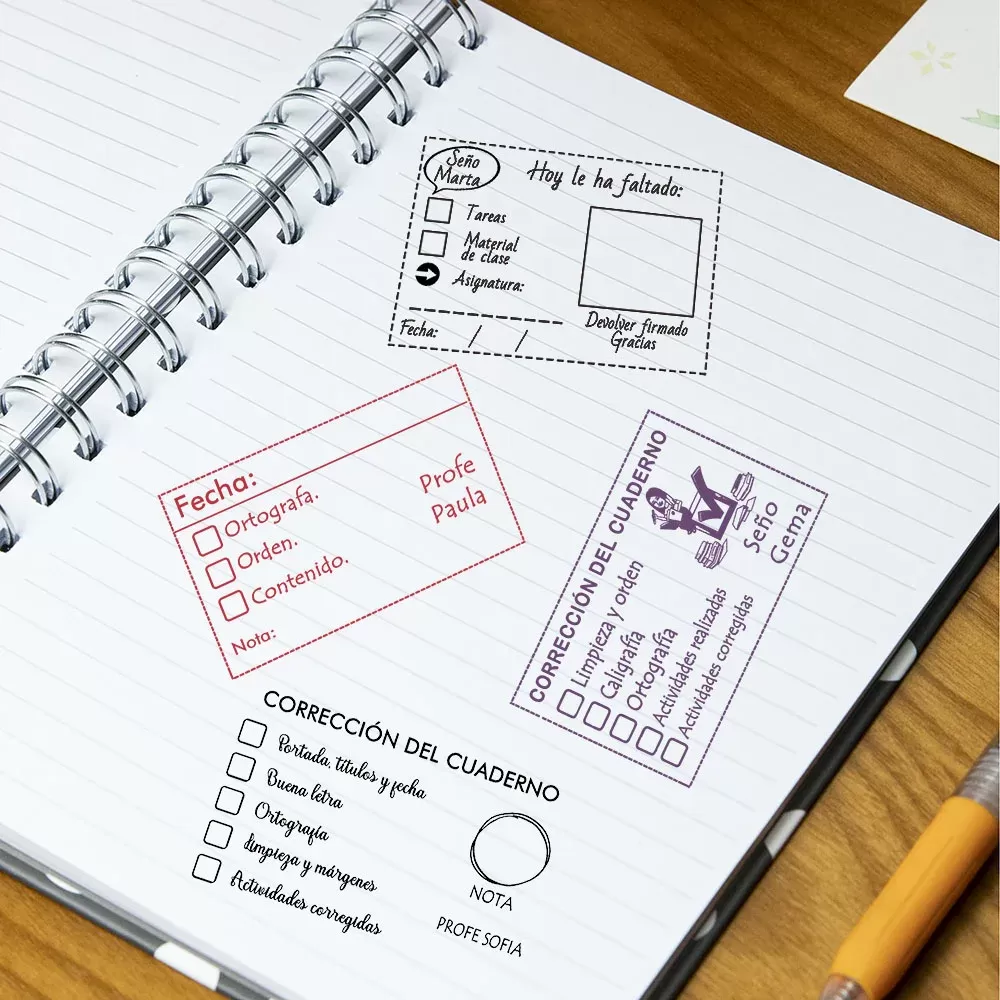 Seño
Marta
Hoy le ha faltado:
Tareas
Material
de clase
Asignatura:
Fecha: / /
Devolver firmado
Gracias
Fecha:
Ortografa.
Orden.
Contenido.
Nota:
Profe
Paula
CORRECCIÓN DEL CUADERNO
Limpieza y orden
Caligrafía
Ortografía
Actividades realizadas
Actividades corregidas
Seño
Gema
CORRECCIÓN DEL CUADERNO
Portada, títulos y fecha
Buena letra
Ortografía
Limpieza y márgenes
Actividades corregidas
NOTA
PROFE SOFIA